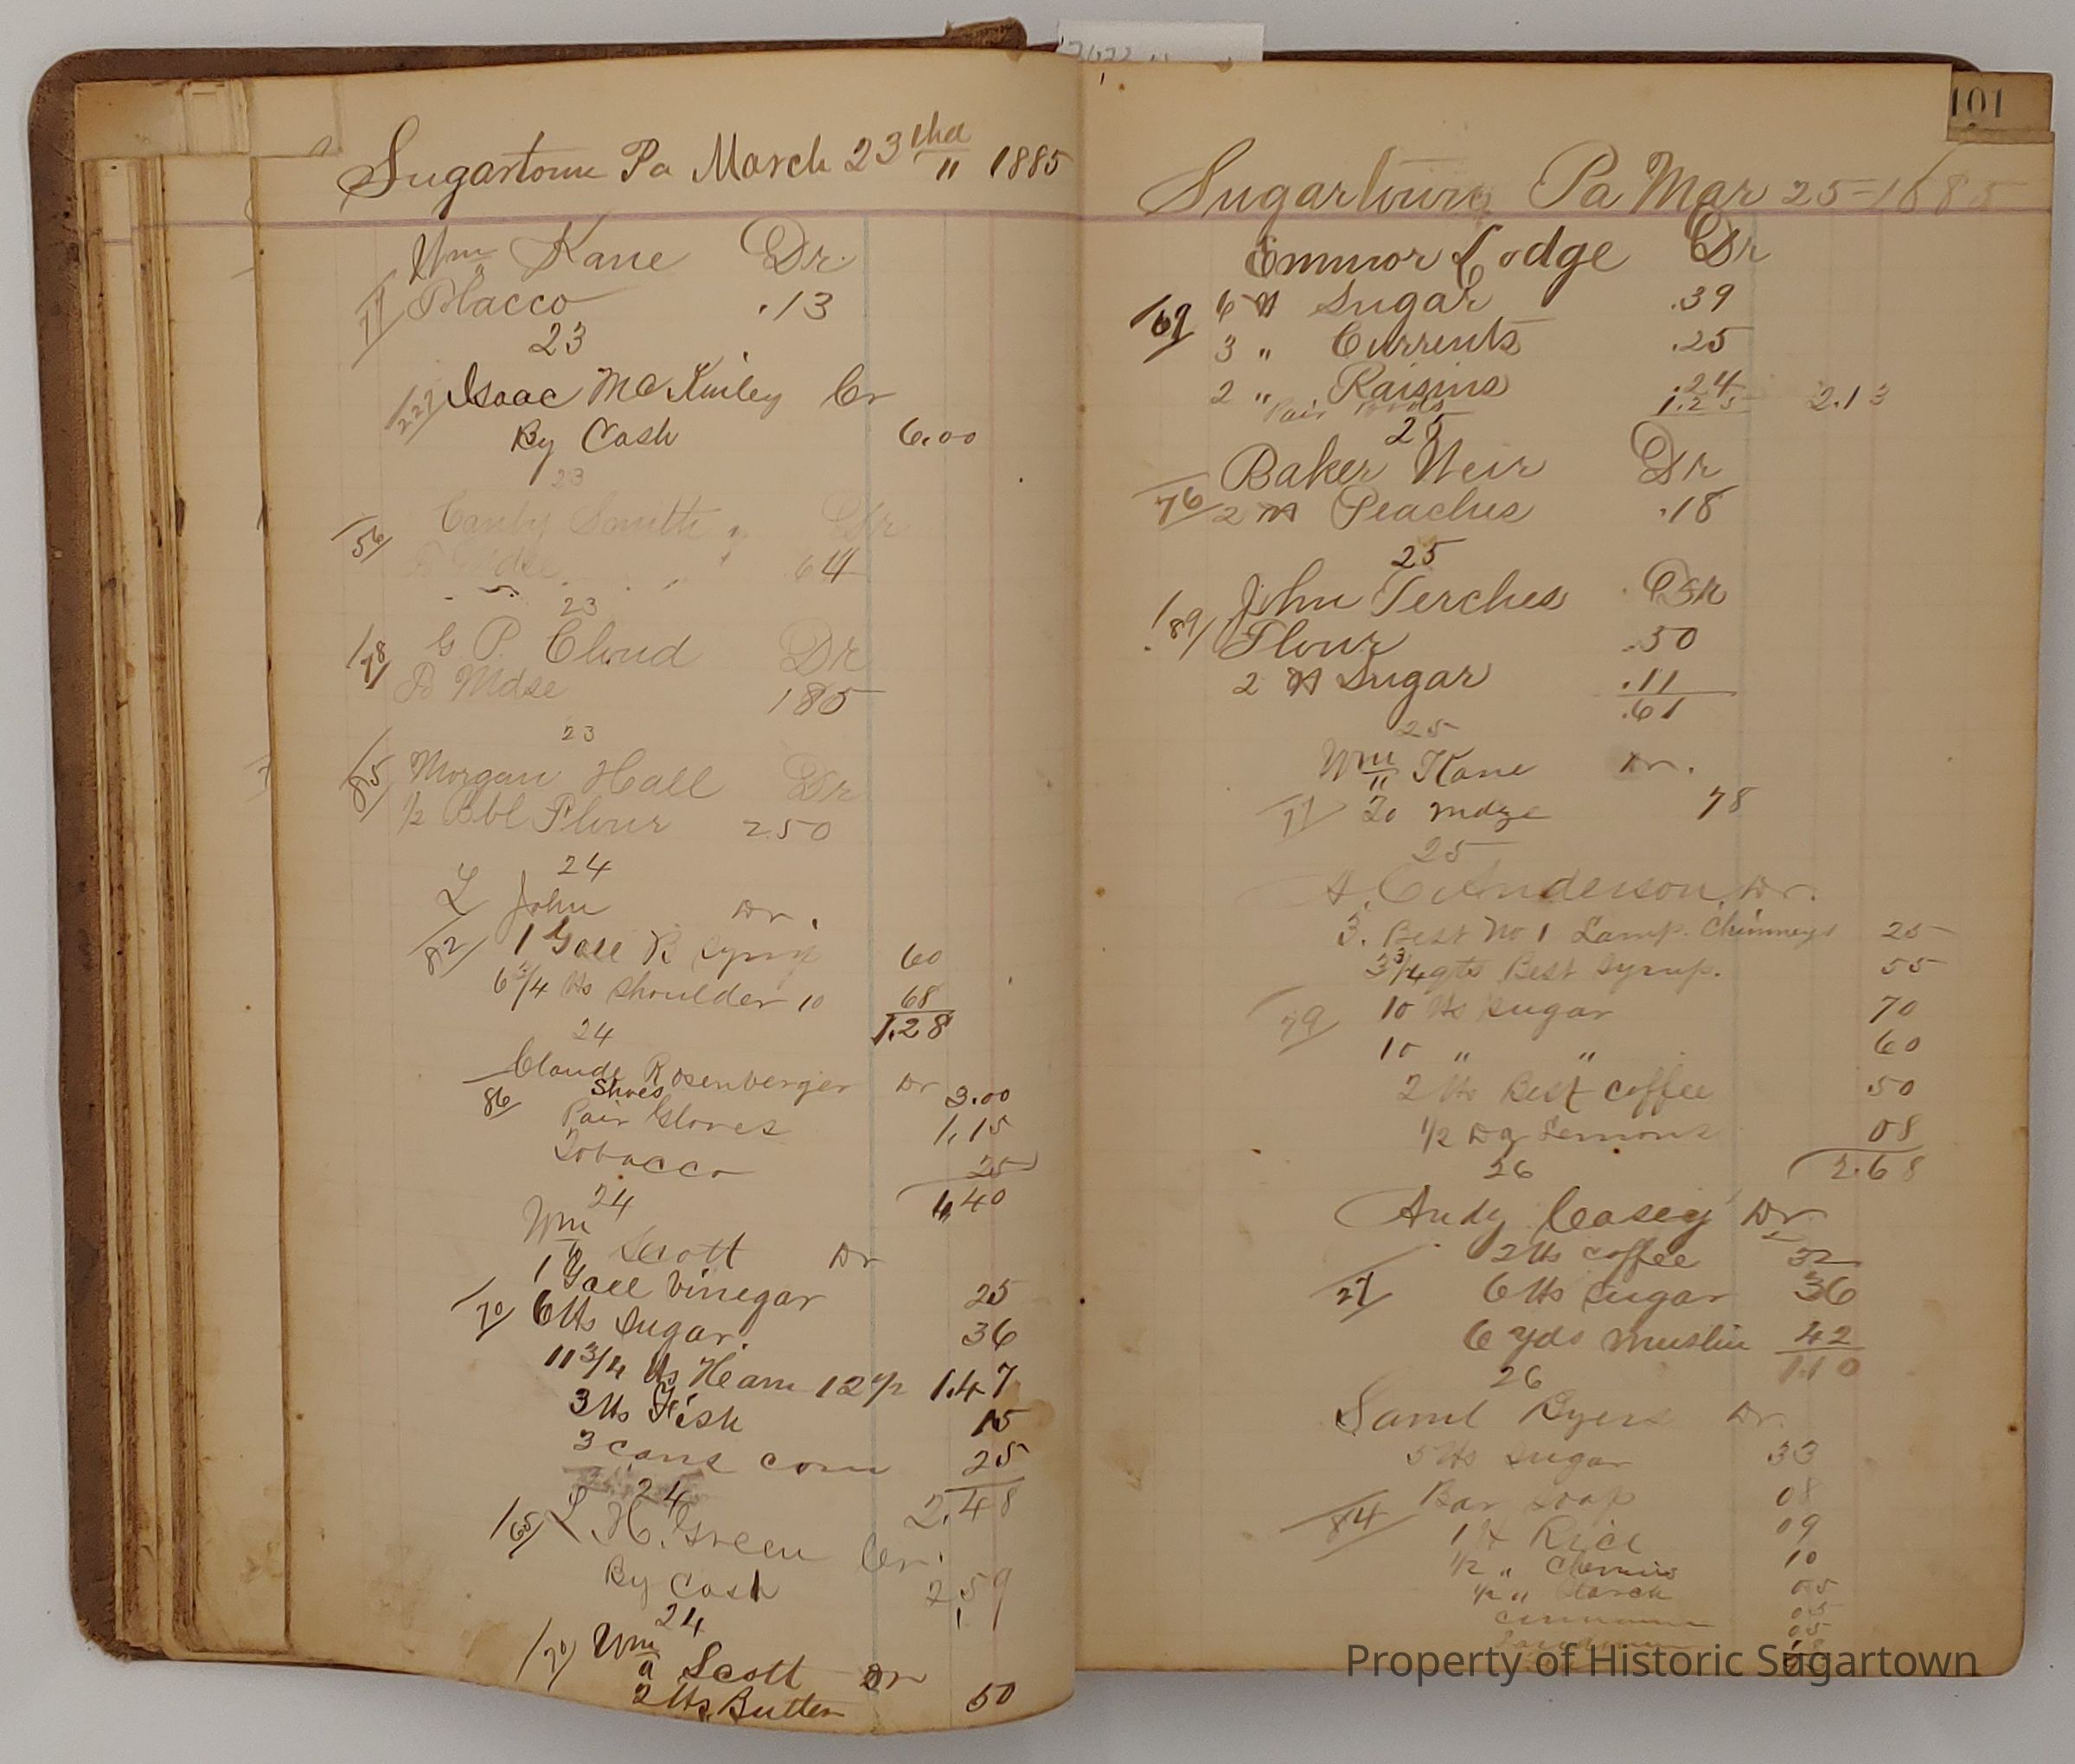 Sugartown Pa March 23 " 1885
Wm Kane Dr.
77 Tobacco .13
23
227 Isaac McKinley Cr
By Cash 6.00
23
56 Smith Dr
To Mdse 64
23
78 G P. Cloud Dr
To Mdse 185
23
85 Morgan Hall Dr
1/2 Bbl Flour 250
24
L John Dr.
82 1 Gall B Syrup 60
6 3/4 lbs Shoulder 10 68
1.28
24
Claude Rosenberger Dr
86 Shoes 3.00
Pair Gloves 1,15
Tobacco 25
4,40
24
Wm Scott Dr
1 Gall Vinegar 25
70 6 lbs Sugar. 36
11 3/4 lbs Ham 12 1/2 1.47
3 lbs Fish 15
3 cans corn 25
24 2.48
65 L H. Green Cr.
By Cash 2,59
24
70 Wm Scott Dr
2 lbs Butter 50
101
Sugartown Pa Mar 25-1885
Emmor Lodge Dr
69 6 lb Sugar .39
3 " Currents .25
2 " Raisins .24
Pair 1.25 2.13
25
Baker Weir Dr
76 2 lb Peaches .18
25
John Terches Dr
89 Flour .50
2 lb Sugar .11
.61
25
Wm Kane Dr.
77 To mdze 78
25
Anderson Dr.
3. Best No 1 Lamp. Chimneys 25
3 3/4 qts Best Syrup. 55
79 10 lbs Sugar 70
10 " " 60
2 lbs Best coffee 50
1/2 Dz Lemons 08
26 2.68
Andy Casey Dr
2 lbs coffee 32
27 6 lbs Sugar 36
6 yds muslin 42
1.10
26
Saml Byers Dr.
5 lbs Sugar 33
Bar Soap 08
84 1 lb Rice 09
1/2 " 10
1/2 " Starch 05
05
Property of Historic Sugartown